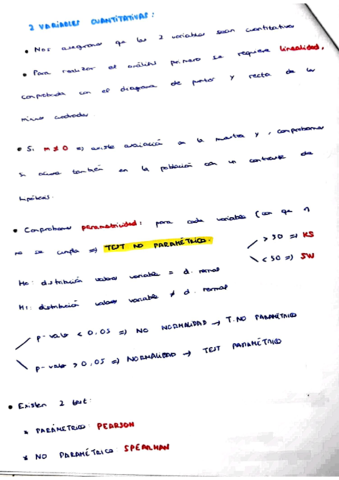 2 VARIABLES CUANTITATIVAS:
• Nos aseguramos que las 2 variables sean cuantitativas
• Para realizar el análisis primero se requiere linealidad,
comprobada con el diagrama de puntos y recta de los
mínimos cuadrados
• Si m ≠ 0 => existe asociación en la muestra y, comprobamos
si ocurre también en la población con un contraste de
hipótesis.
• Comprobamos parametricidad: para cada variable (con que 1
no se cumpla => TEST NO PARAMÉTRICO.
> 50 => KS
< 50 => SW
H0: distribución valores variable = d. normal
H1: distribución valores variable ≠ d. normal
p-valor < 0,05 => NO NORMALIDAD → T. NO PARAMÉTRICO
p-valor > 0,05 => NORMALIDAD → TEST PARAMÉTRICO
• Existen 2 test:
* PARÁMETRICO: PEARSON
* NO PARAMÉTRICO SPEARMAN